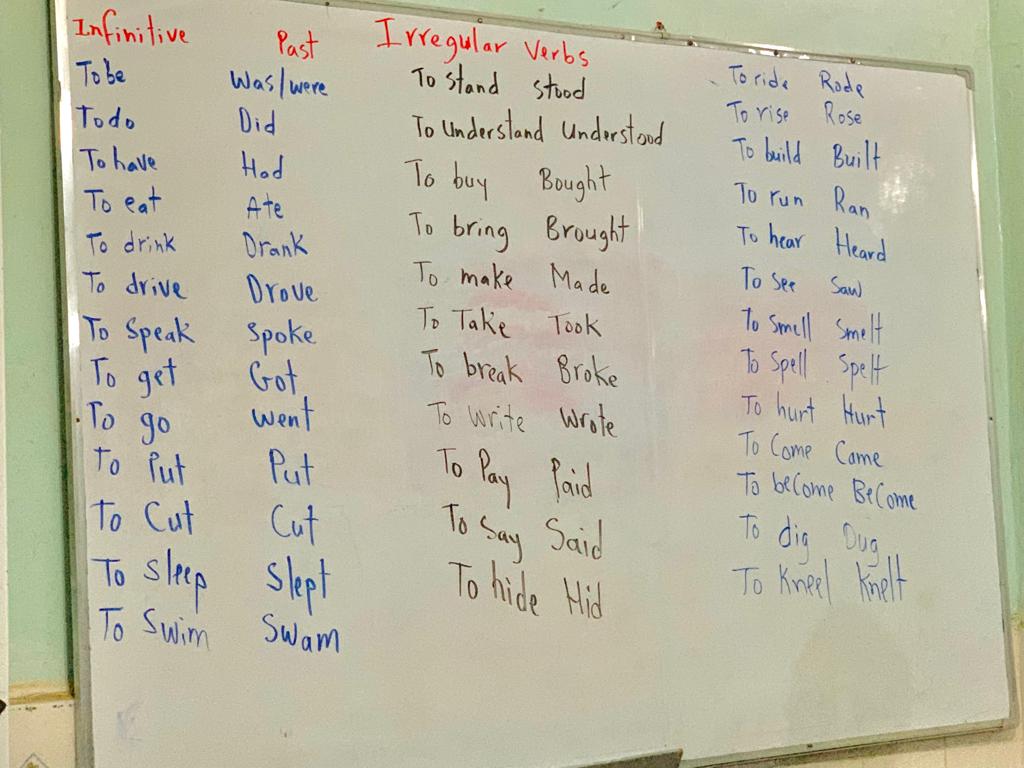 Infinitive Past
To be Was/were
To do Did
To have Had
To eat Ate
To drink Drank
To drive Drove
To Speak Spoke
To get Got
To go went
To Put Put
To Cut Cut
To sleep Slept
To Swim Swam
Irregular Verbs
To stand stood
To Understand Understood
To buy Bought
To bring Brought
To make Made
To Take Took
To break Broke
To write Wrote
To Pay Paid
To say Said
To hide Hid
To ride Rode
To rise Rose
To build Built
To run Ran
To hear Heard
To see Saw
To smell Smelt
To spell Spelt
To hurt Hurt
To Come Came
To become Become
To dig Dug
To Kneel Knelt